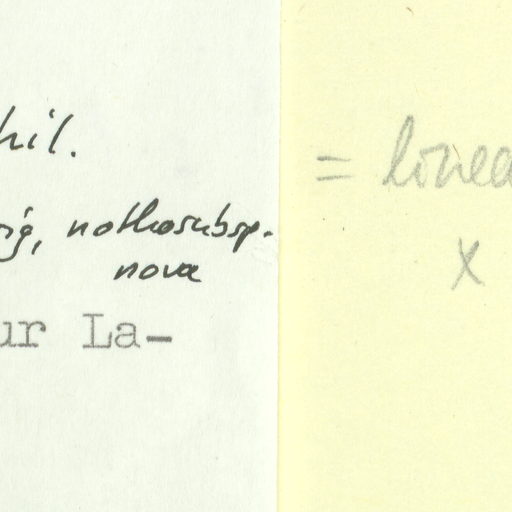 hil.
ig, nothosubsp.
nova
ur La-
= linea
x